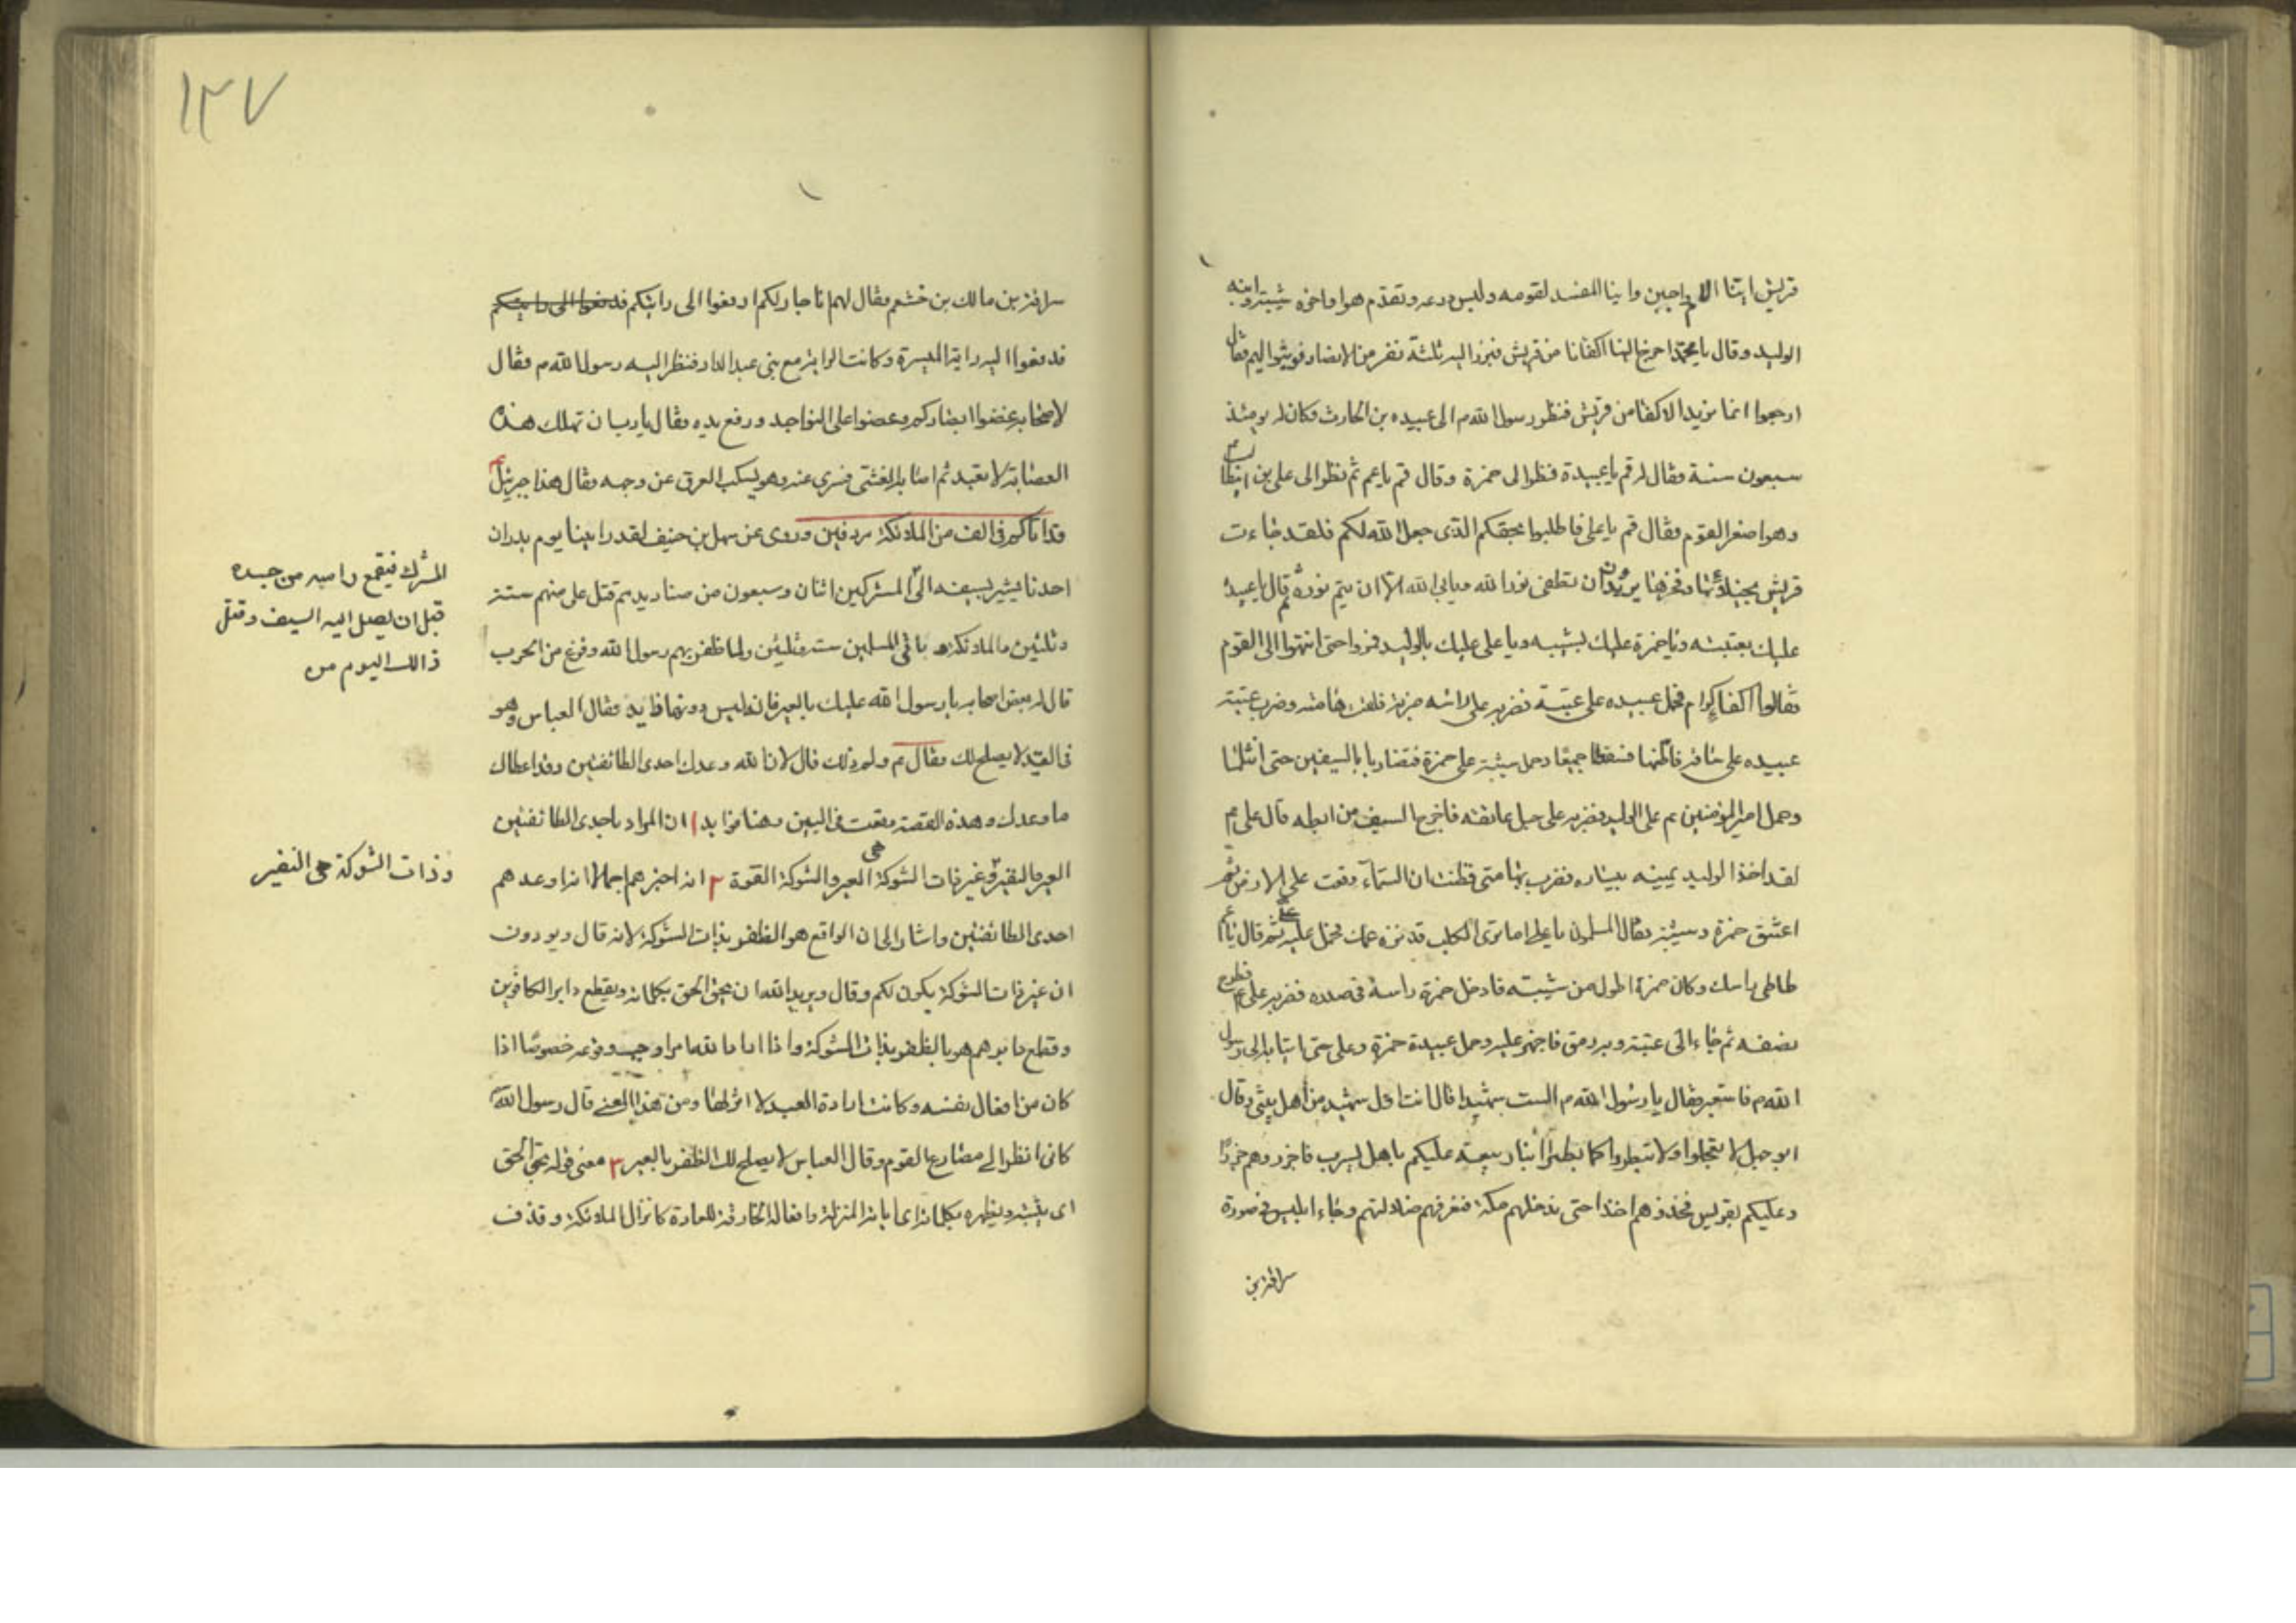 قريش اينا الالم واجبن واينا المفسد لقومه ولبس درعه وتقدم هو واخوه شيبة وابنه
الوليد وقال يا محمد اخرج الينا اكفانا من قريش فبرز اليه ثلثة نفر من الانصار فوثبوا اليهم فقال
ارجعوا انما نريد الاكفا من قريش فنظر رسول الله م الى عبيده بن الحارث فكان له يومئذ
سبعون سنة فقال له قم يا عبيدة فنظر الى حمزة وقال قم يا عم ثم نظر الى على بن ابيطا
وهو اصغر القوم فقال قم يا على فاطلبوا بحقكم الذى جعل الله لكم فلقد جاءت
قريش بخيلائها وفخرها يريدون ان تطفى نور الله ويابى الله الا ان يتم نوره ثم قال يا عبيدة
عليك بعتبة ويا حمزة عليك بشيبه ويا على عليك بالوليد فمروا حتى انتهوا الى القوم
فقالوا اكفا كرام فحمل عبيده على عتبة فضربه على راسه ضربة فلقت هامته وضرب عتبة
عبيده على ساقه فاطنها فسقطا جميعا وحمل شيبة على حمزة فتضاربا بالسيفين حتى انثلما
وحمل امير المؤمنين م على الوليد فضربه على حبل عاتقه فاخرج السيف من ابطه قال على م
لقد اخذ الوليد يمينه بيساره فضرب بها هامتى فظننت ان السماء وقعت على الارض ثم
اعتنق حمزة وشيبة فقال المسلمون يا على اما ترى الكلب قد نهزه عمك فحمل عليه على ثم قال يا عم
طاطى راسك وكان حمزة اطول من شيبته فادخل حمزة راسه فى صدره فضربه على م فطرح
نصفه ثم جاء الى عتبة وبه رمق فاجهز عليه وحمل عبيدة حمزة وعلى حتى اتيا به الى رسول
الله م فاستعبر فقال يا رسول الله م الست شهيدا قال انت اول شهيد من اهل بيتى وقال
ابو جهل لا تعجلوا ولا تبطروا كما بطر ابنا ربيعة عليكم باهل يثرب فاجزروهم جزرا
وعليكم بقريش فخذوهم اخذا حتى ندخلهم مكة فنعرفهم ضلالتهم وجاء ابليس فى صورة
سراقة بن
١٣٧
سراقة بن مالك بن خشعم فقال لهم انا جار لكم ادفعوا الى رايتكم فدفعوا الى رايتكم
فدفعوا اليه راية الميسرة وكانت الراية مع بنى عبد الدار فنظر اليه رسول الله م فقال
لاصحابه غضوا ابصاركم وعضوا على النواجد ورفع يده فقال يا رب ان تهلك هذه
العصابة لا تعبد ثم اصابه الغشى فسرى عنه وهو يسكب العرق عن وجهه فقال هذا جبرئيل
قد اتاكم فى الف من الملائكة مردفين وروى عن سهل بن حنيف لقد راينا يوم بدر ان
احدنا يشير بسيفه الى المشركين اثنان وسبعون من صناديدهم قتل على منهم ستة
وثلثين والملائكة باقى المسلمين ستة وثلثين ولما ظفر بهم رسول الله وفرغ من الحرب
قال له بعض اصحابه يا رسول الله عليك بالعير فانه ليس دونها فايده فقال العباس وهو
فى القيد لا يصلح لك فقال م ولم ذلك قال لان الله وعدك احدى الطائفتين وقد اعطاك
ما وعدك وهذه القصة وقعت فى البين وهنا فوايد ا ان المراد باحدى الطائفتين
العير والنفير وغير ذات الشوكة هى العير والشوكة القوة ٢ انه اخبرهم اجمالا انه اوعدهم
احدى الطائفتين واشار الى ان الواقع هو الظفر بذات الشوكة لانه قال ويودون
ان غير ذات الشوكة يكون لكم وقال ويريد الله ان يحق الحق بكلماته ويقطع دابر الكافرين
وقطع دابرهم هو بالظفر بذات الشوكة واذا اراد الله امرا وجب وقوعه خصوصا اذا
كان من افعال نفسه وكانت ارادة العبد لا اثر لها ومن هذا المعنى قال رسول الله
كانى انظر الى مصارع القوم وقال العباس لا يصلح لك الظفر بالعير ٣ معنى قوله يحق الحق
اى يثبته ويظهره بكلماته اى اياته المنزلة وافعاله الخارقة للعادة كانزال الملائكة وقذف
المشرك فيقع راسه من جسده
قبل ان يصل اليه السيف وقتل
ذالك اليوم من
وذات الشوكة هى النفير